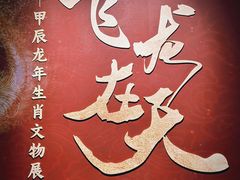 飞龙在天
甲辰龙年生肖文物展